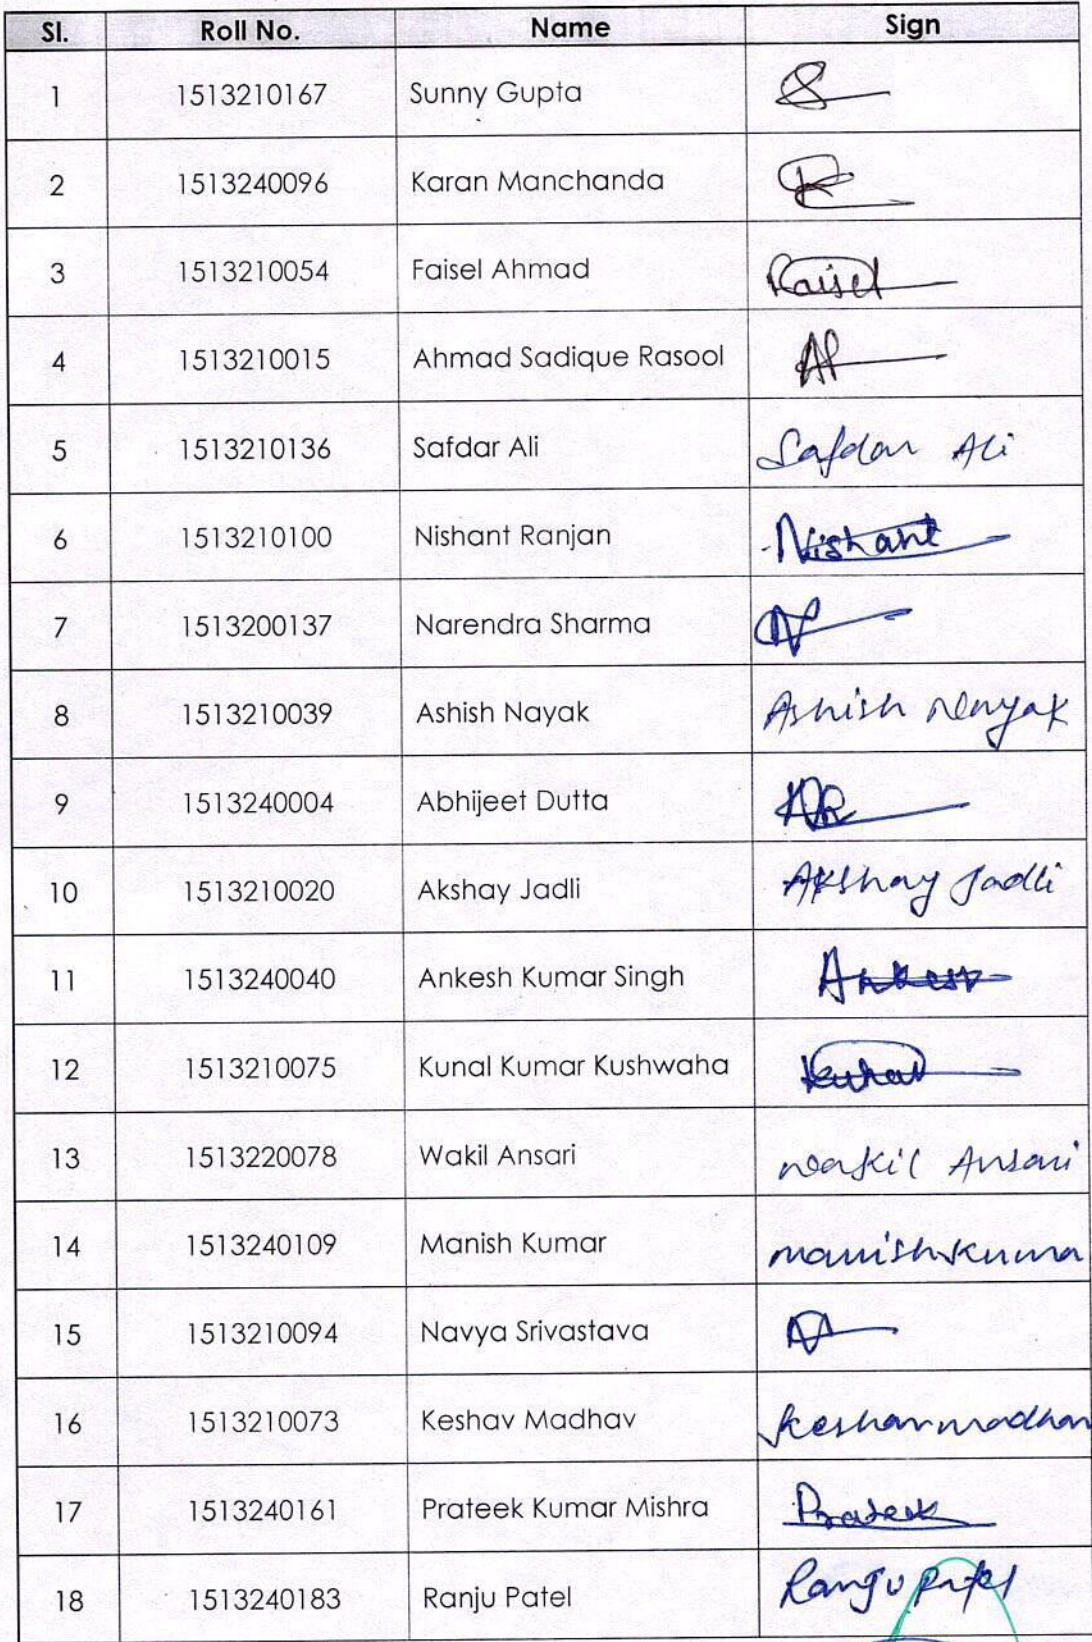 Sl. Roll No. Name Sign
1 1513210167 Sunny Gupta
2 1513240096 Karan Manchanda
3 1513210054 Faisel Ahmad Faisel
4 1513210015 Ahmad Sadique Rasool
5 1513210136 Safdar Ali Safdar Ali
6 1513210100 Nishant Ranjan Nishant
7 1513200137 Narendra Sharma
8 1513210039 Ashish Nayak Ashish Nayak
9 1513240004 Abhijeet Dutta
10 1513210020 Akshay Jadli Akshay Jadli
11 1513240040 Ankesh Kumar Singh Ankesh
12 1513210075 Kunal Kumar Kushwaha Kunal
13 1513220078 Wakil Ansari Wakil Ansari
14 1513240109 Manish Kumar manishkuma
15 1513210094 Navya Srivastava
16 1513210073 Keshav Madhav keshavmadhav
17 1513240161 Prateek Kumar Mishra Prateek
18 1513240183 Ranju Patel Ranju Patel